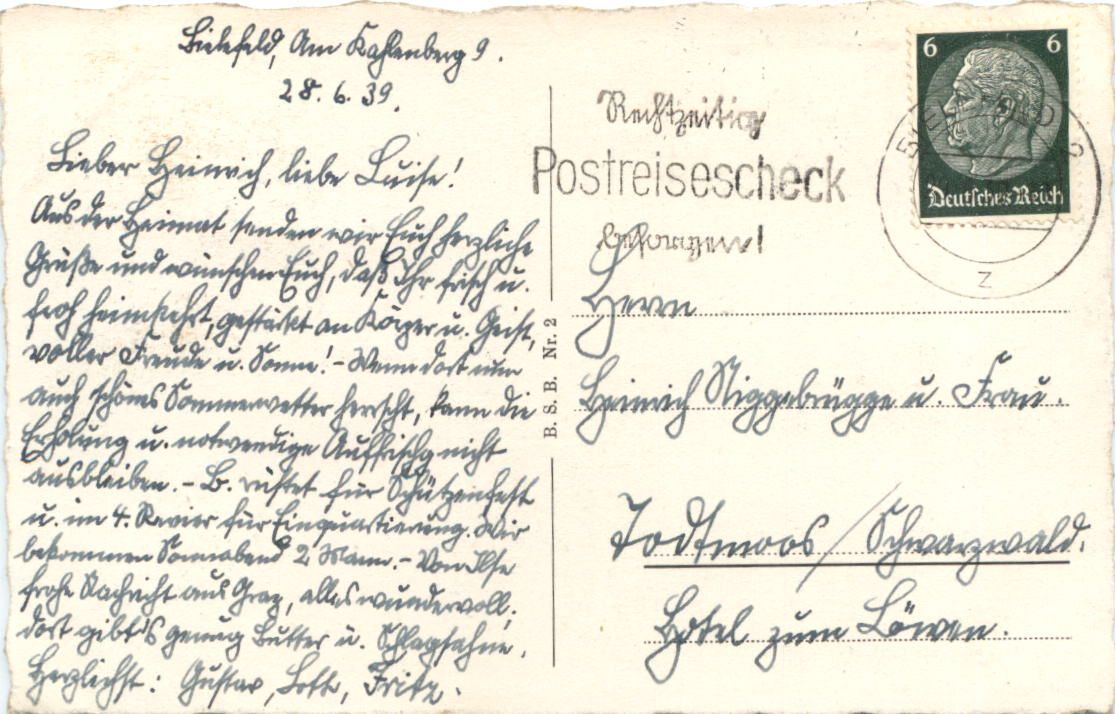 Bielefeld, Am Kahlenberg 9.
28.6.39.
Lieber Heinrich, liebe Luise!
Aus der Heimat senden wir Euch herzliche
Grüße und wünschen Euch, daß Ihr frisch u.
froh heimkehrt, gestärkt an Körper u. Geist,
voller Freude u. Sonne! - Wenn dort nun
auch schönes Sommerwetter herrscht, kann die
Erholung u. notwendige Auffrischg nicht
ausbleiben. - B. rüstet für Schützenfest
u. im 4. Revier für Einquartierung. Wir
bekommen Sonnabend 2 Mann. - Von Ilse
frohe Nachricht aus Graz, alles wundervoll;
dort gibt's genug Butter u. Schlagsahne.
Herzlichst: Gustav, Lotte, Fritz.
B. S. B. Nr. 2
Rechtzeitig
Postreisescheck
besorgen!
6 6
Deutsches Reich
BIELEFELD 2
Z
Herrn
Heinrich Niggebrügge u. Frau.
Todtmoos / Schwarzwald.
Hotel zum Löwen.